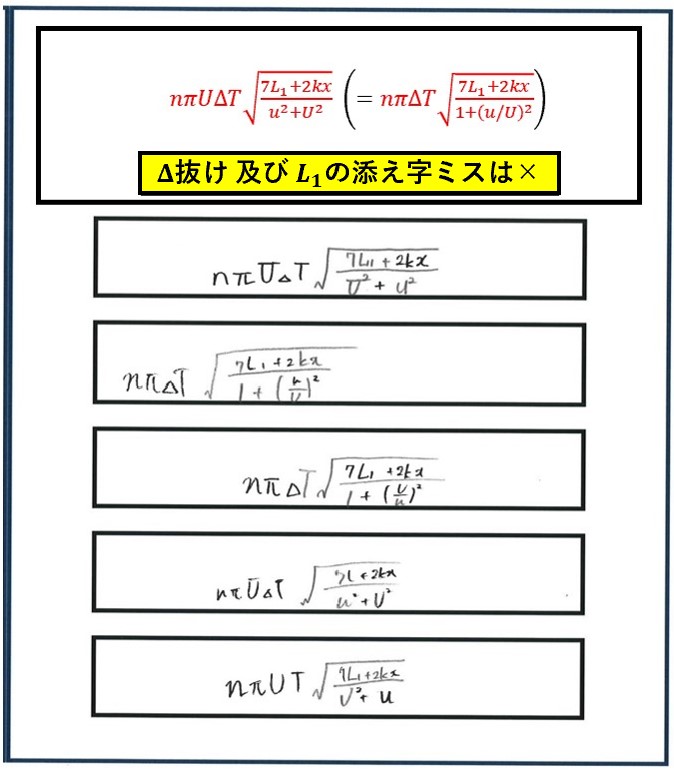 nπUΔT√((7L₁+2kx)/(u²+U²)) (= nπΔT√((7L₁+2kx)/(1+(u/U)²)))
Δ抜け 及び L₁の添え字ミスは×
nπUΔT√((7L₁+2kx)/(U²+u²))
nπΔT√((7L₁+2kx)/(1+(u/U)²))
nπΔT√((7L₁+2kx)/(1+(U/u)²))
nπUΔT√((7L+2kx)/(u²+U²))
nπUT√((7L₁+2kx)/(U²+u))